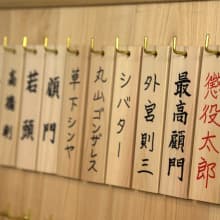 懲役太郎
最高顧問
外宮則三
シバター
丸山ゴンザレス
草下シンヤ
顧問
若頭
高橋創